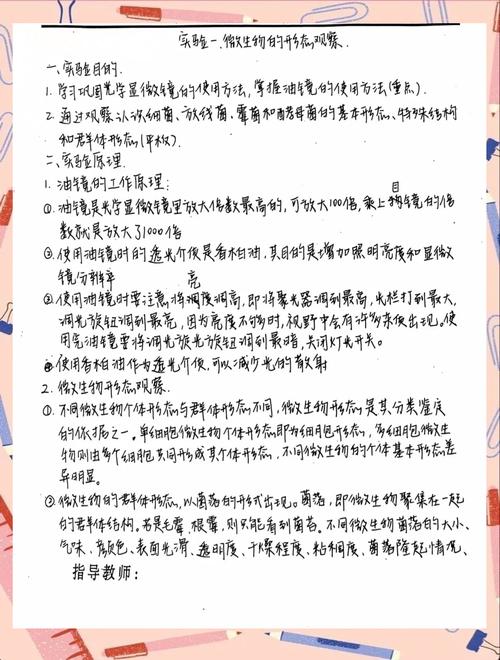 实验一.微生物的形态观察.
一、实验目的.
1. 学习巩固光学显微镜的使用方法,掌握油镜的使用方法(重点).
2. 通过观察认识细菌、放线菌、霉菌和酵母菌的基本形态、特殊结构
和群体形态(平板).
二、实验原理.
1. 油镜的工作原理:
①. 油镜是光学显微镜里放大倍数最高的,可放大100倍,乘上目镜的倍
数就是放大了1000倍
②. 使用油镜时的透光介质是香柏油,其目的是增加照明亮度和显微
镜分辨率
③使用油镜时要注意将调亮度调高,即将聚光器调到最高,光栏打到最大,
调光旋钮调到最亮,因为亮度不够时,视野中会有许多杂质出现。使
用完油镜需将调光旋光旋钮调到最暗,关闭灯光开关。
使用香柏油作为透光介质,可以减少光的散射
2. 微生物形态观察.
①. 不同微生物个体形态与群体形态不同,微生物形态是其分类鉴定
的依据之一。单细胞微生物个体形态即为细胞形态,多细胞微生
物则由多个细胞共同形成其个体形态,不同微生物的个体基本形态差
异明显。
②微生物的群体形态,以菌落的形式出现。菌落,即微生物聚集在一起
的群体结构。若是毛霉、根霉,则只能看到菌苔。不同微生物菌落的大小、
气味、颜色、表面光滑、透明度、干燥程度、粘稠度、菌落隆起情况、
指导教师: